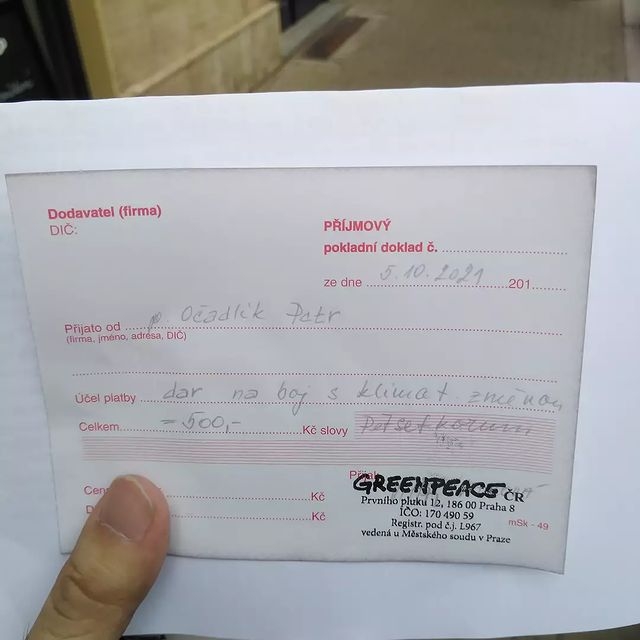 Dodavatel (firma)
DIČ:
PŘÍJMOVÝ
pokladní doklad č.
ze dne 5.10.2021 201
Přijato od p. Očadlík Petr
(firma, jméno, adresa, DIČ)
Účel platby dar na boj s klimat. změnou
Celkem =500,- Kč slovy Pětset korun
Kč
GREENPEACE ČR
Prvního pluku 12, 186 00 Praha 8
IČO: 170 490 59
Kč
Registr. pod č.j. L967
mSk - 49
vedená u Městského soudu v Praze